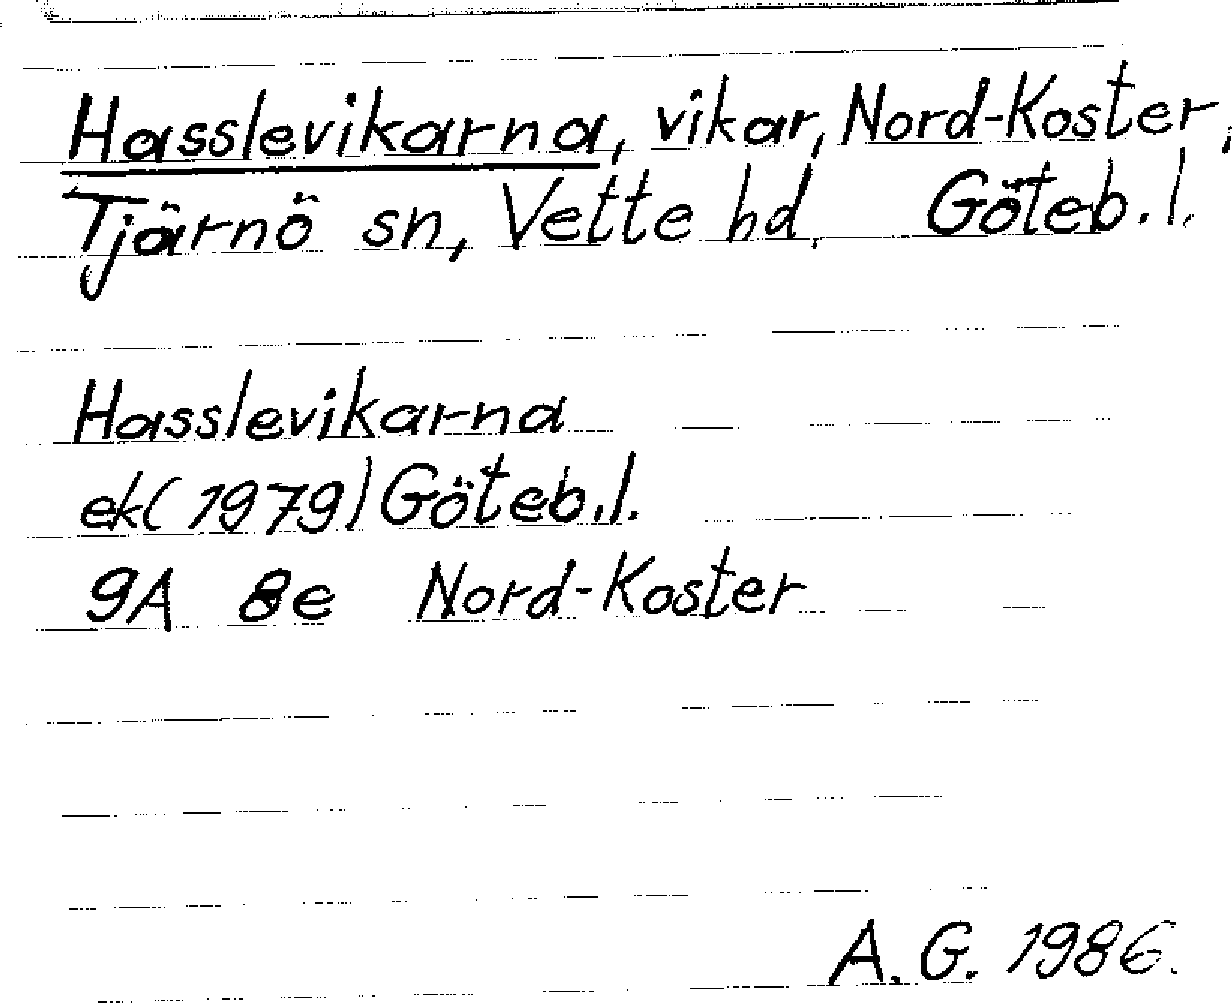 Hasslevikarna, vikar, Nord-Koster,
Tjärnö sn, Vette hd, Göteb. l.
Hasslevikarna
ek (1979) Göteb. l.
9A 8e Nord-Koster
A. G. 1986.